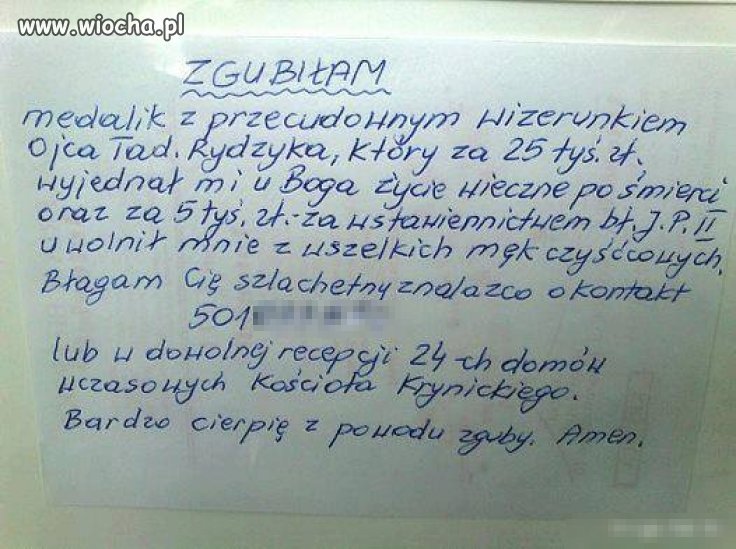 www.wiocha.pl
ZGUBIŁAM
medalik z przecudownym wizerunkiem
Ojca Tad. Rydzyka, który za 25 tyś. zł.
wyjednał mi u Boga życie wieczne po śmierci
oraz za 5 tyś. zł.-za wstawiennictwem bł. J.P. II
uwolnił mnie z wszelkich męk czyśćcowych.
Błagam Cię szlachetny znalazco o kontakt
501
lub w dowolnej recepcji 24-ch domów
wczasowych Kościoła Krynickiego.
Bardzo cierpię z powodu zguby. Amen.